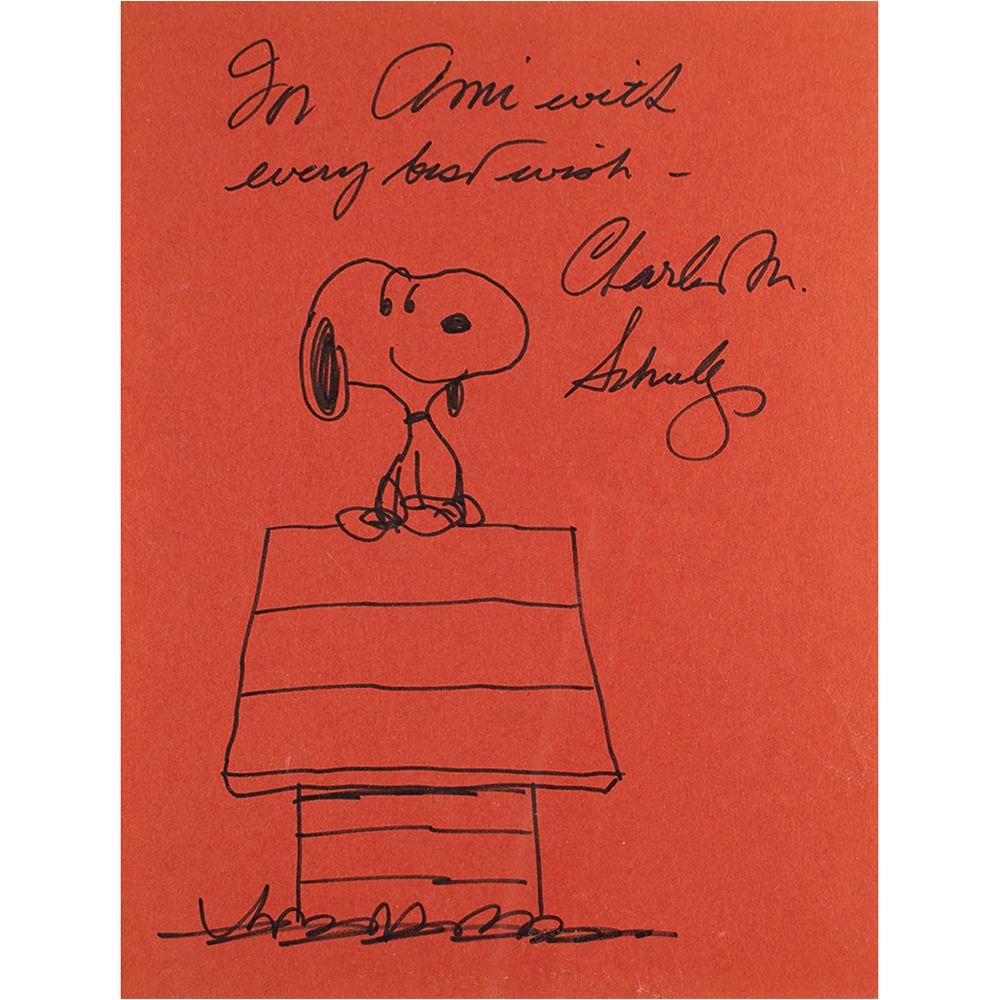 For Ami with
every best wish –
Charles M.
Schulz